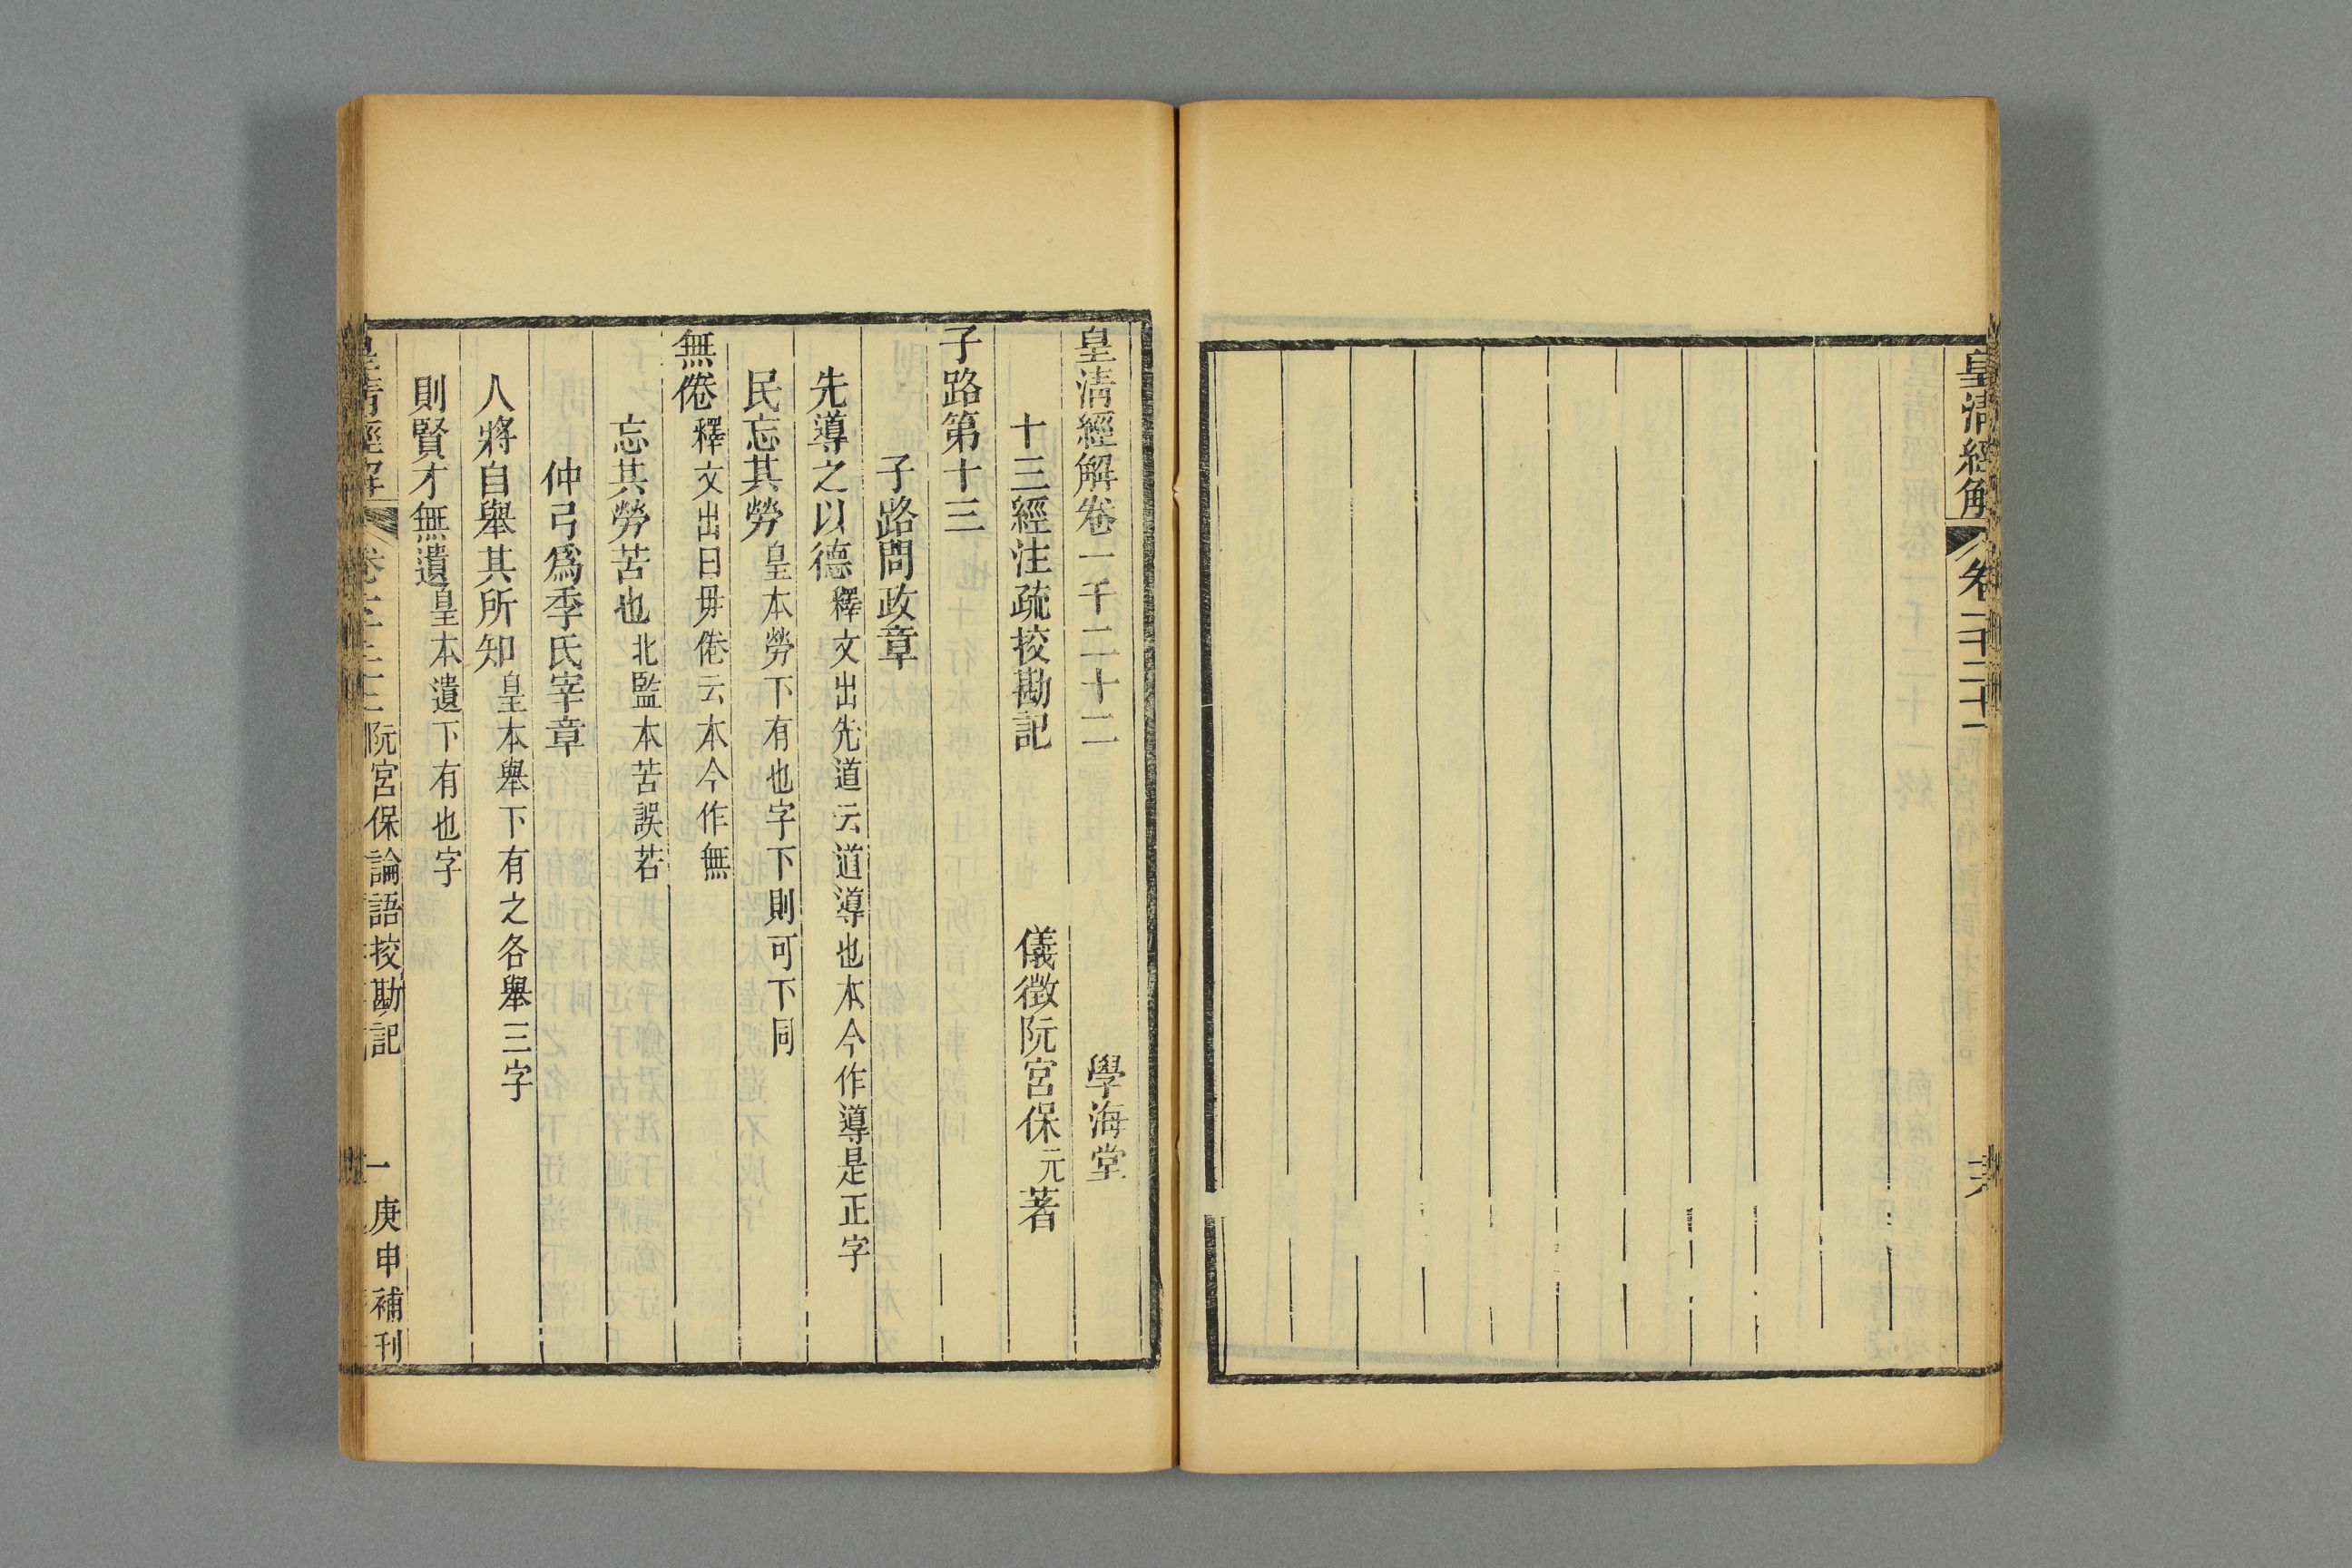 皇清經解
皇清經解卷一千二十二
學海堂
十三經注疏挍勘記
儀徵阮宮保元著
子路第十三
子路問政章
先導之以德釋文出先道云道導也本今作導是正字
民忘其勞皇本勞下有也字下則可下同
無倦釋文出曰毋倦云本今作無
忘其勞苦也北監本苦誤若
仲弓爲季氏宰章
人將自舉其所知皇本舉下有之各舉三字
則賢才無遺皇本遺下有也字
皇清經解
阮宮保論語挍勘記
一
庚申補刊